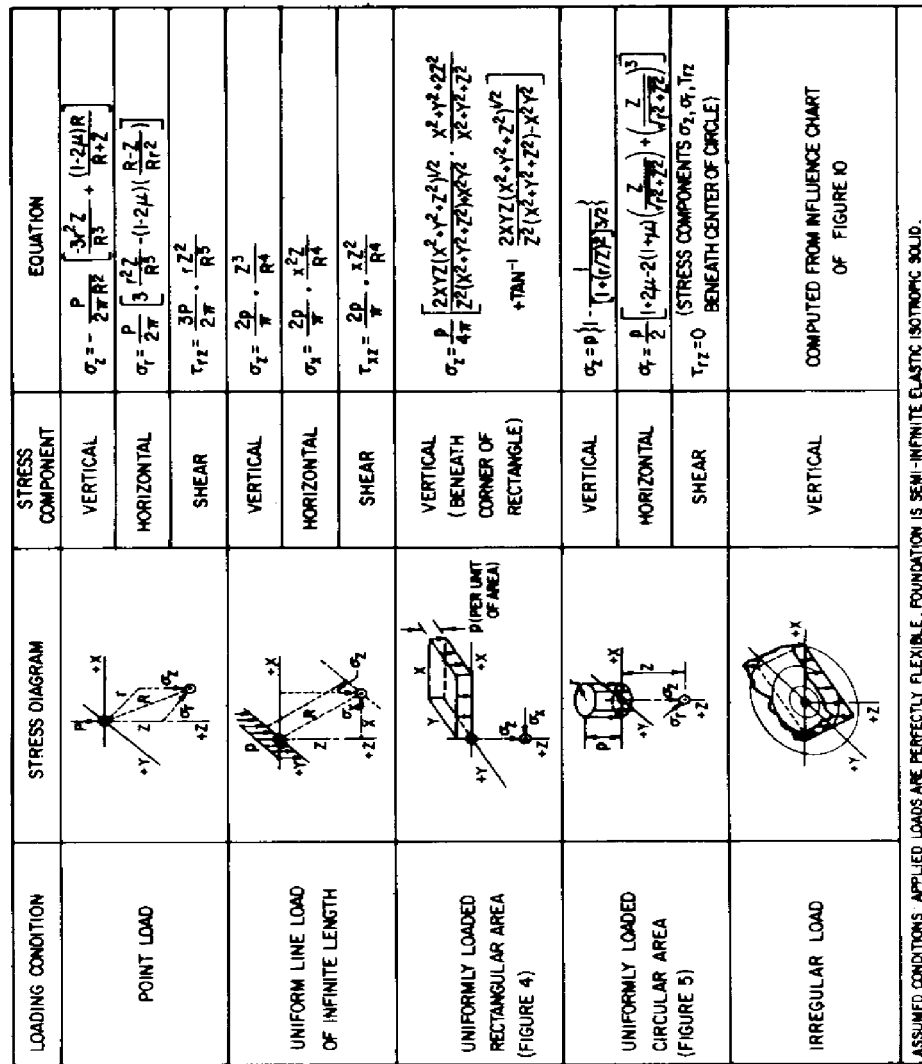 LOADING CONDITION
STRESS DIAGRAM
STRESS COMPONENT
EQUATION
POINT LOAD
P
+X
r
R
Z
σz
σr
+Y
+Z
VERTICAL
σz = - P/2πR² [-3r²Z/R³ + (1-2μ)R/R+Z]
HORIZONTAL
σr = P/2π [3 r²Z/R⁵ - (1-2μ)(R-Z/Rr²)]
SHEAR
τrz = 3P/2π · rZ²/R⁵
UNIFORM LINE LOAD
OF INFINITE LENGTH
P
+X
+Y
R
Z
σz
σx
X
+Z
VERTICAL
σz = 2p/π · Z³/R⁴
HORIZONTAL
σx = 2p/π · x²Z/R⁴
SHEAR
τxz = 2p/π · xZ²/R⁴
UNIFORMLY LOADED
RECTANGULAR AREA
(FIGURE 4)
X
Y
p (PER UNIT
OF AREA)
+X
+Y
σz
σx
+Z
VERTICAL
(BENEATH
CORNER OF
RECTANGLE)
σz = p/4π [2XYZ(X²+Y²+Z²)^1/2 / Z²(X²+Y²+Z²)+X²Y² · X²+Y²+2Z² / X²+Y²+Z²
+TAN⁻¹ 2XYZ(X²+Y²+Z²)^1/2 / Z²(X²+Y²+Z²)-X²Y²]
UNIFORMLY LOADED
CIRCULAR AREA
(FIGURE 5)
P
+X
+Y
Z
σz
σr
+Z
VERTICAL
σz = p{1 - 1/[1+(r/Z)²]^3/2}
HORIZONTAL
σr = p/2 [1+2μ-2(1+μ)(Z/√r²+Z²) + (Z/√r²+Z²)³]
SHEAR
τrz = 0 (STRESS COMPONENTS σz, σr, τrz
BENEATH CENTER OF CIRCLE)
IRREGULAR LOAD
+X
+Y
+Z
VERTICAL
COMPUTED FROM INFLUENCE CHART
OF FIGURE 10
ASSUMED CONDITIONS: APPLIED LOADS ARE PERFECTLY FLEXIBLE. FOUNDATION IS SEMI-INFINITE ELASTIC ISOTROPIC SOLID.